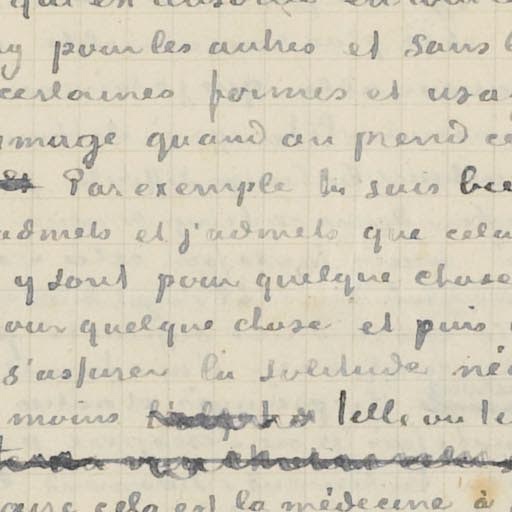 qui est
pour les autres et sans
certaines formes et usa
mmage quand on prend ce
Par exemple tu sais
admets et j'admets que cela
y sont pour quelque chose
our quelque chose et puis
s'assurer la solitude né
moins telle ou te
que cela est la médecine à